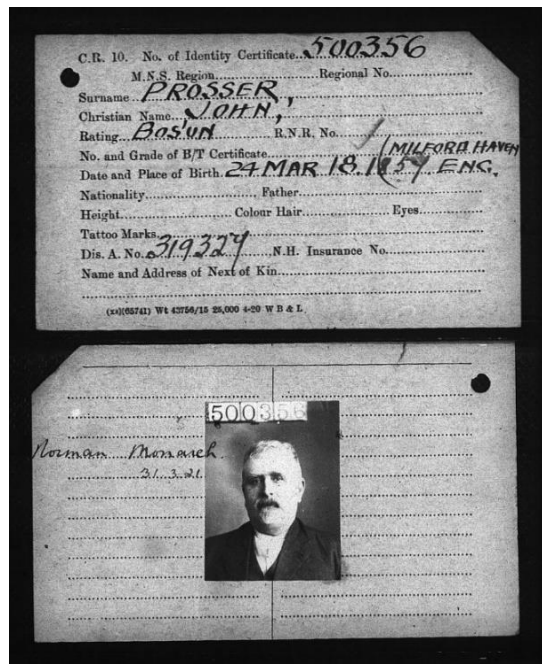 C.R. 10. No. of Identity Certificate...500356
M.N.S. Region....................Regional No................
Surname..PROSSER,
Christian Name...JOHN,
Rating..BOSUN..........R.N.R. No.
No. and Grade of B/T Certificate............(MILFORD HAVEN
Date and Place of Birth.24 MAR 18.1857 ENG.
Nationality....................Father....................
Height....................Colour Hair...............Eyes...............
Tattoo Marks....................
Dis. A. No. 319327....N.H. Insurance No....................
Name and Address of Next of Kin....................
(xx)(65741) Wt 43756/15 25,000 4-20 W B & L
500356
Norman Monarch.
31.3.21